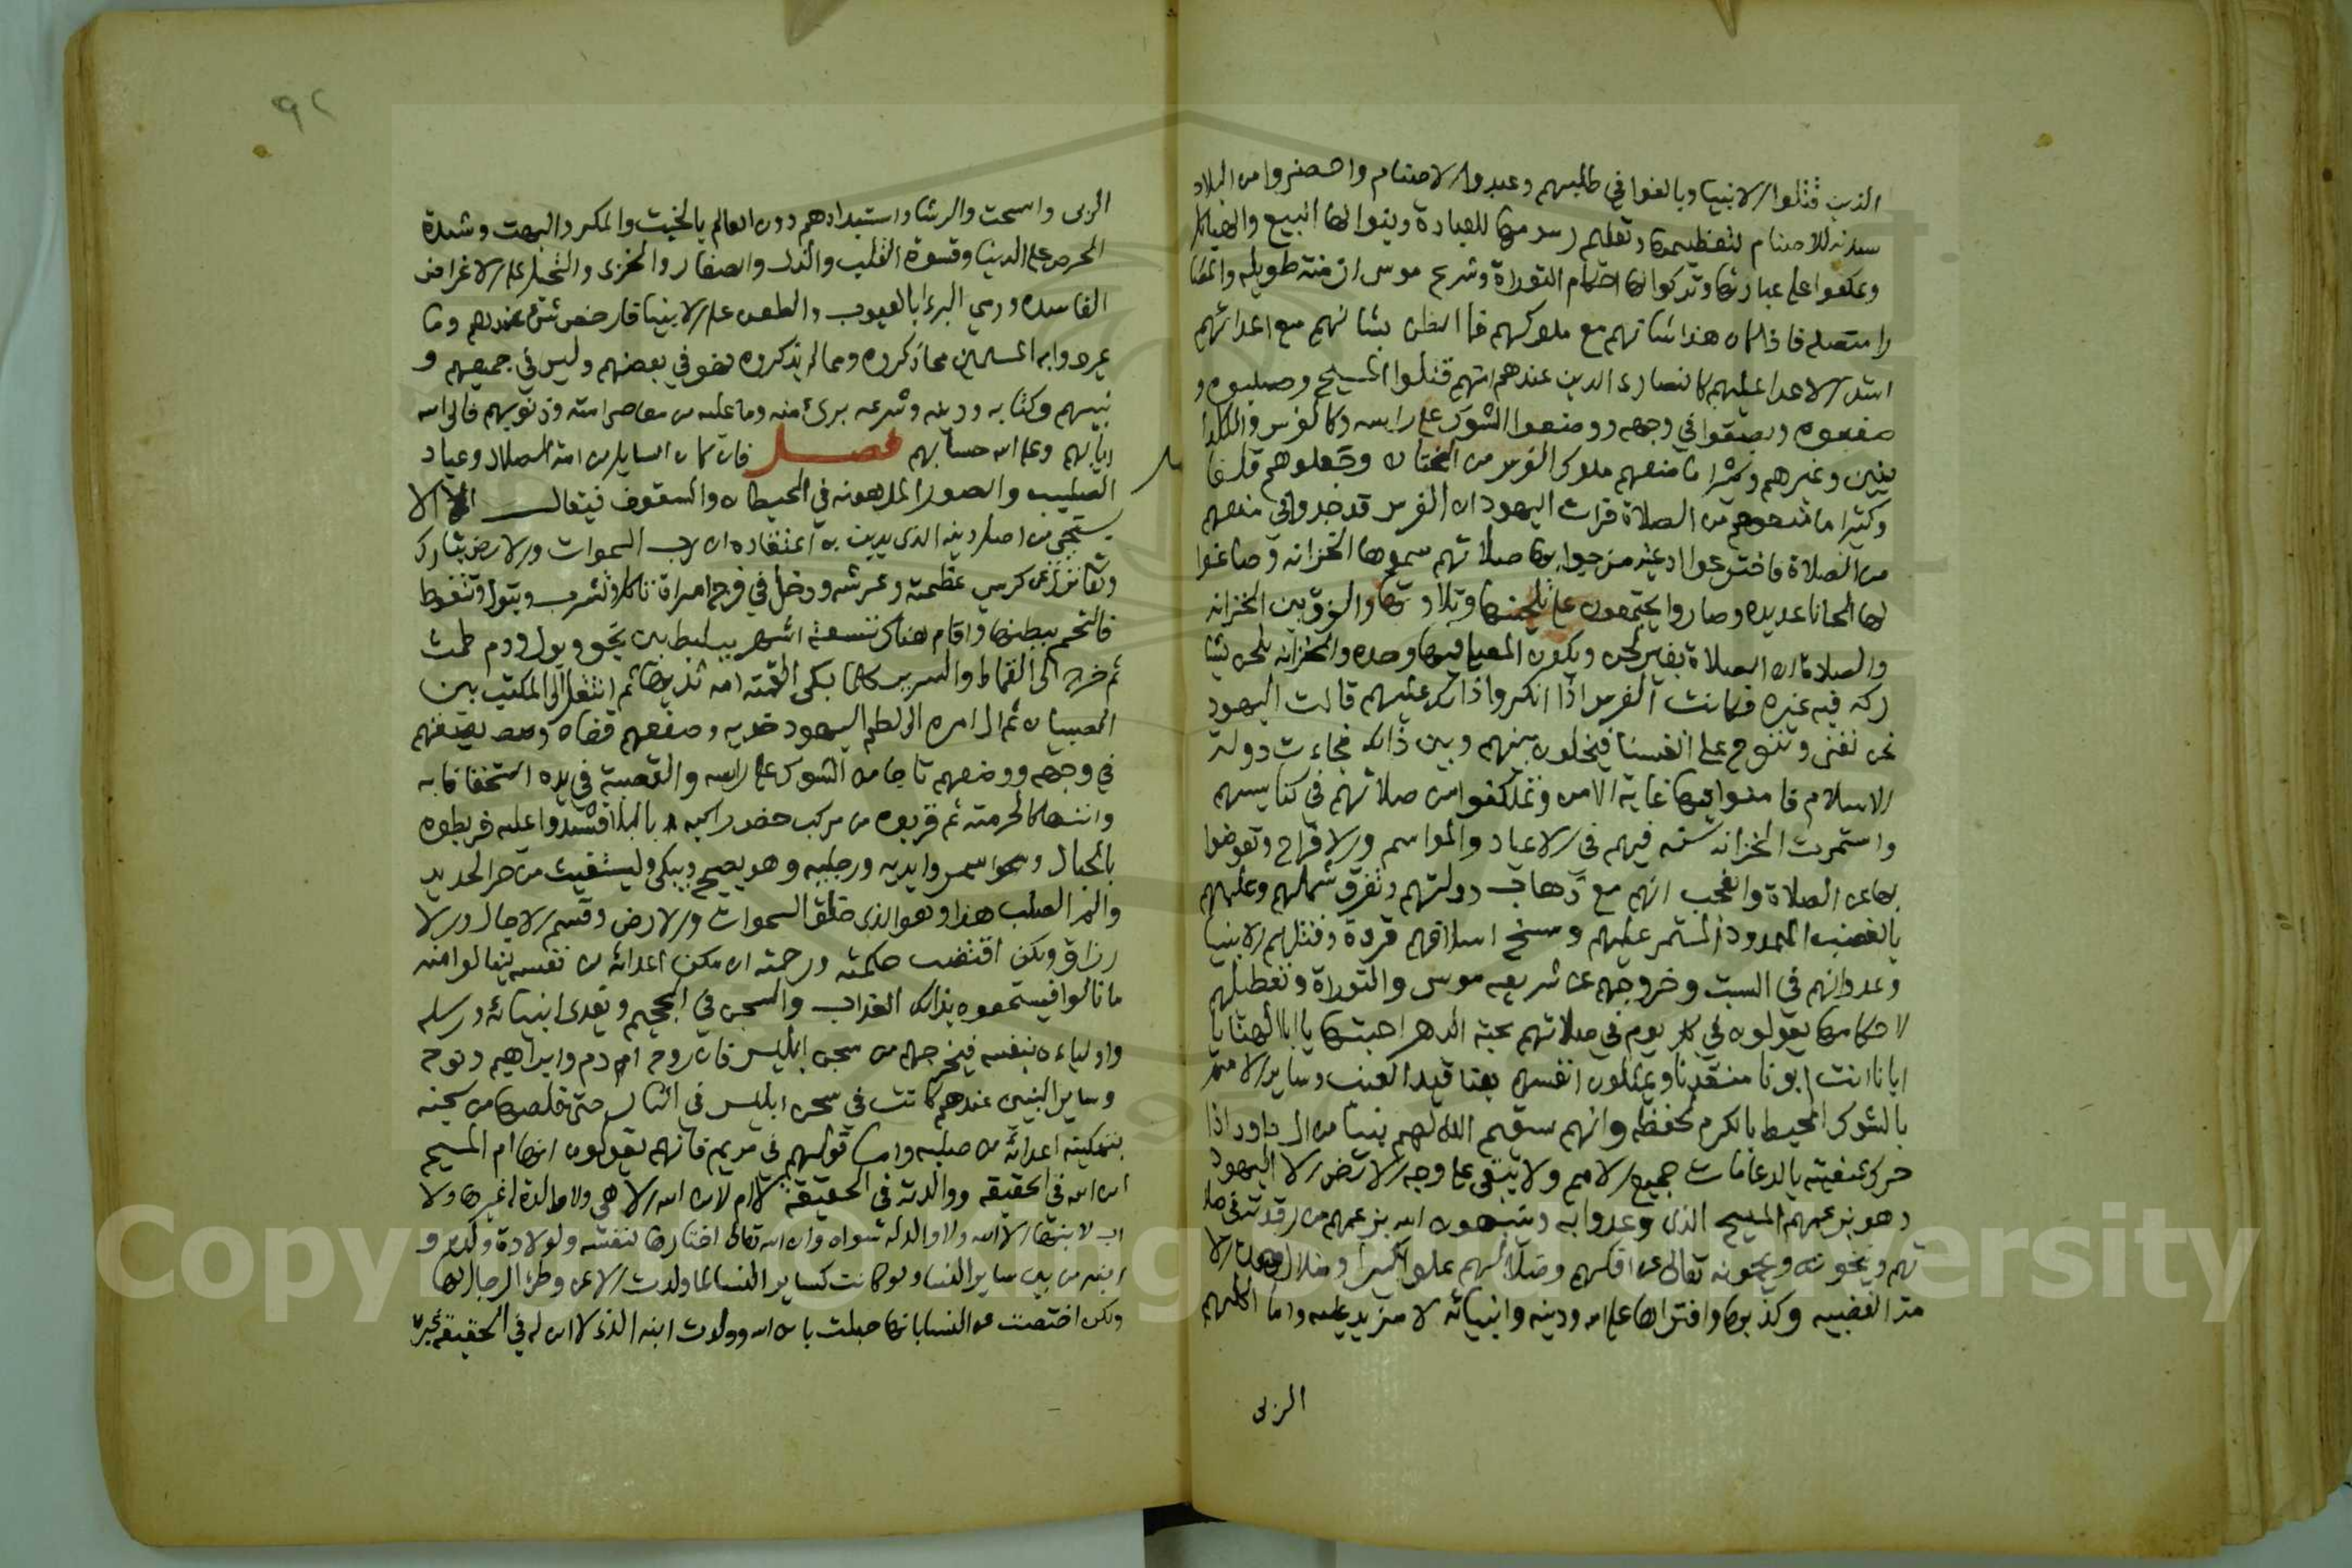 الذين قتلوا الانبيا وبالغوا في طلبهم وعبدوا الاصنام واحضروا من البلاد
سدنه للاصنام لتعظيمها وتعليم رسومها للعبادة وبنوا لها البيع والهياكل
وعكفوا على عبادتها وتركوا لها احكام التوراة وشرع موسى ازمنة طويله واعصا
را متصله فاذا كان هذا شانهم مع ملوكهم فما الظن بشانهم مع اعدائهم
اشد الاعدا عليهم كالنصارى الذين عندهم انهم قتلوا المسيح وصلبوه و
صفعوه وبصقوا في وجهه ووضعوا الشوك على راسه وكالفرس والكلدا
نيين وغيرهم وكثيرا ما منعهم ملوك الفرس من الختان وجعلوهم قلفا
وكثيرا ما منعوهم من الصلاة فرات اليهود ان الفرس قد جدوا في منعهم
من الصلاة فاخترعوا ادعيه مزجوا بها صلاتهم سموها الخزانه وصاغوا
لها الحانا عديده وصاروا يجتمعون على تلحينها وتلاوتها والفرق بين الخزانه
والصلاة ان الصلاة بغير لحن ويكون المصلي فيها وحده والخزانه بلحن يشا
ركه فيه غيره فكانت الفرس اذا انكروا ذلك عليهم قالت اليهود
نحن نغنى وننوح على انفسنا فيخلون بينهم وبين ذلك فجاءت دولة
الاسلام فامنوا فيها غاية الامن وتمكنوا من صلاتهم في كنايسهم
واستمرت الخزانه سنة فيهم في الاعياد والمواسم والافراح وتعوضوا
بها عن الصلاة والعجب انهم مع ذهاب دولتهم وتفرق شملهم وعلمهم
بالغضب الممدود المستمر عليهم ومسخ اسلافهم قردة وقتلهم الانبيا
وعدوانهم في السبت وخروجهم عن شريعه موسى والتوراة وتعطيلهم
لاحكامها يقولون في كل يوم في صلاتهم محبة الدهر احبنا يا ابانا الهنا يا
ابانا انت ابونا منقذنا ويمثلون انفسهم بعناقيد العنب وساير الامم
بالشوك المحيط بالكرم لحفظه وانهم سيقيم الله لهم نبيا من ال داود اذا
حرك شفتيه بالدعا مات جميع الامم ولا يبقى على وجه الارض الا اليهود
وهو بزعمهم المسيح الذى وعدوا به وينبهون الله بزعمهم من رقدته في صلا
تهم وينخونه ويحمونه تعالى عن افكهم وضلالهم علوا كبيرا وضلال هذه الا
مة الغضبيه وكذبها وافتراها على الله ودينه وانبيائه لا مزيد عليه واما اكلهم
الربى
٩٢
الربى والسحت والرشا واستبدادهم دون العالم بالخبث والمكر والبهت وشدة
الحرص على الدنيا وقسوة القلب والذل والصغار والخزى والتحيل على الاغراض
الفاسده ورمي البرءا بالعيوب والطعن على الانبيا فارخص شئ عندهم وما
عيروا به المسلمين مما ذكروه ومما لم يذكروه فهو في بعضهم وليس في جميعهم و
نبيهم وكتابه ودينه وشرعه برئ منه وما عليه من معاصى امته وذنوبهم فالى الله
ايابهم وعلى الله حسابهم فصل فان كان السايل من امة الضلال وعباد
الصليب والصور المدهونه في الحيطان والسقوف فيقال له الا
يستحي من اصل دينه الذى يدين به اعتقاده ان رب السموات والارض تبارك
وتعالى نزل عن كرسي عظمته وعرشه ودخل في فرج امراة تاكل وتشرب وتبول وتتغوط
فالتحم ببطنها واقام هناك تسعة اشهر يتلبط بين نجو وبول ودم طمث
ثم خرج الى القماط والسرير كلما بكى القمته امه ثديها ثم انتقل الى المكتب بين
الصبيان ثم ال امره الى لطم اليهود خديه وصفعهم قفاه وبصقهم
في وجهه ووضعهم تاجا من الشوك على راسه والقصبة في يده استخفافا به
وانتهاكا لحرمته ثم قربوه من مركب خص راكبه بالبلا فشدوا عليه فربطوه
بالحبال وسمروا يديه ورجليه وهو يصيح ويبكى ويستغيث من حر الحديد
والم الصلب هذا وهو الذى خلق السموات والارض وقسم الاجال والا
رزاق ولكن اقتضت حكمته ورحمته ان مكن اعدائه من نفسه لينالوا منه
ما نالوا فيستحقوا بذلك العذاب والسجن في الجحيم ويفدى انبيائه ورسله
واوليائه بنفسه فيخرجهم من سجن ابليس فان روح ادم وابراهيم ونوح
وساير النبيين عندهم كانت في سجن ابليس في النار حتى خلصها من سجنه
بتمكينه اعدائه من صلبه واما قولهم في مريم فانهم يقولون انها ام المسيح
ابن الله في الحقيقه ووالدته في الحقيقة لا ام لابن الله الا هي ولا والدة له غيرها ولا
اب لابنها الا الله ولا والد له سواه وان الله تعالى اختارها لنفسه ولولادة ولده و
ابنه من بين ساير النسا ولو كانت كساير النسا لما ولدت الا عن وطئ الرجال لها
ولكن اختصت عن النسا بانها حبلت بابن الله وولدت ابنه الذى لا ابن له في الحقيقة غيره